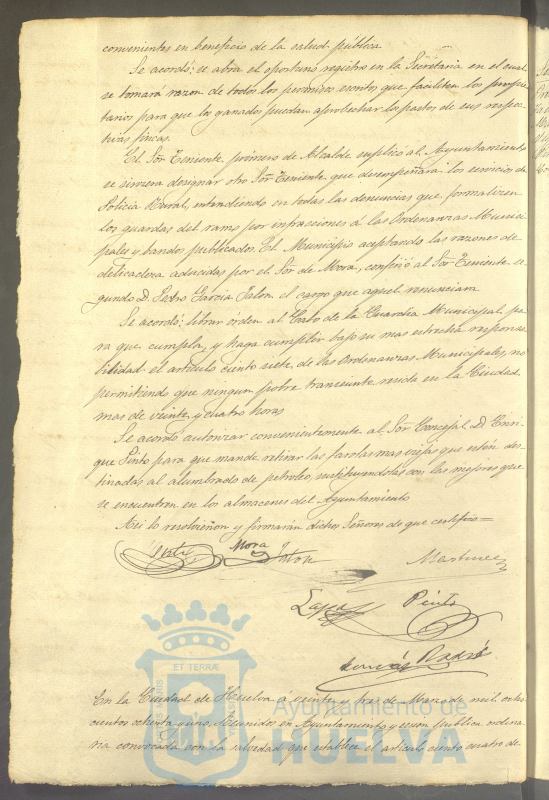 convenientes en beneficio de la salud pública
Se acordó: se abra el oportuno registro en la Secretaria en el cual
se tomará razon de todos los permisos escritos que faciliten los propie
tarios para que los ganados puedan aprobechar los pastos de sus respec
tivas fincas.
El Sor Teniente primero de Alcalde suplicó al Ayuntamiento
se sirviera designar otro Sor Teniente que desempeñara los servicios de
Policia Rural, entendiendo en todas las denuncias que formalizen
los guardas del ramo por infracciones á las Ordenanzas Munici
pales y bandos publicados. El Municipio aceptando las razones de
delicadeza aducidas por el Sor de Mora, confirió al Sor Teniente se
gundo D. Pedro Garcia Jalon el cargo que aquel renunciara
Se acordó: librar orden al Cabo de la Guardia Municipal pa
ra que cumpla, y haga cumplir bajo su mas estrecha responsa
bilidad el articulo ciento siete de las Ordenanzas Municipales, no
permitiendo que ningun pobre transeunte resida en la Ciudad
mas de veinte y cuatro horas
Se acordó autorizar convenientemente al Sor Concejal D. Enri
que Pinto para que mande retirar las farolas mas viejas que estén des
tinadas al alumbrado de petroleo, sustituyendolas con las mejores que
se encuentren en los almacenes del Ayuntamiento
Asi lo resolvieron y firmarán dichos Señores de que certifico=
Mora Jalon Martinez
Pinto
ET TERRÆ
En la Ciudad de Huelva a veinte y tres de Marzo de mil ocho
cientos ochenta y uno. Reunidos en Ayuntamiento y sesion publica ordina
ria convocada con la salvedad que establece el articulo ciento cuatro de
Ayuntamiento de
HUELVA